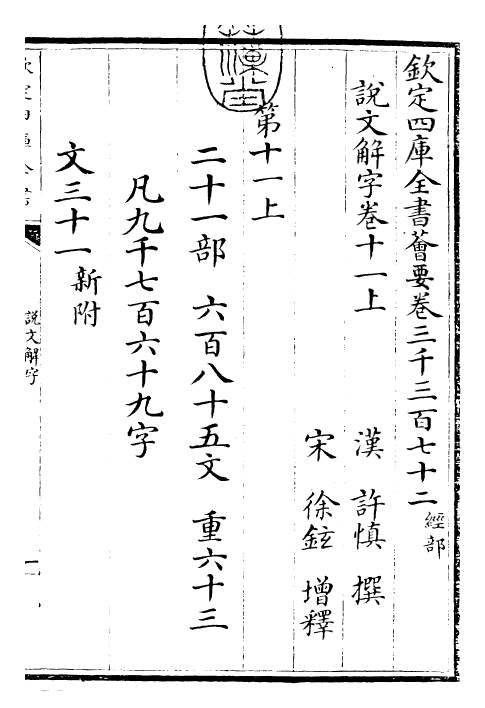 欽定四庫全書薈要卷三千三百七十二 經部
說文解字卷十一上
漢 許慎 撰
宋 徐鉉 增釋
第十一上
二十一部 六百八十五文 重六十三
凡九千七百六十九字
文三十一 新附
說文解字